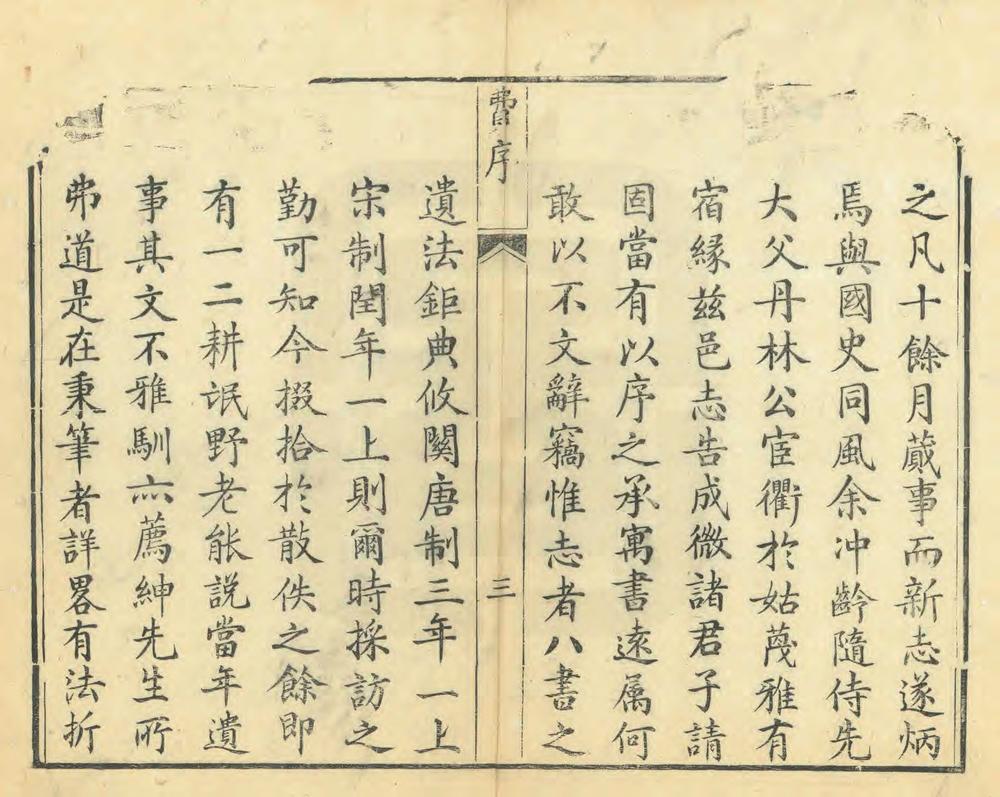 之凡十餘月蕆事而新志遂炳
焉與國史同風余冲齡隨侍先
大父丹林公宦衢於姑蔑雅有
宿緣茲邑志告成微諸君子請
固當有以序之承寓書遠属何
敢以不文辭竊惟志者八書之
費序
三
遺法鉅典攸關唐制三年一上
宋制閏年一上則爾時採訪之
勤可知今掇拾於散佚之餘即
有一二耕氓野老能說當年遺
事其文不雅馴亦薦紳先生所
弗道是在秉筆者詳畧有法折